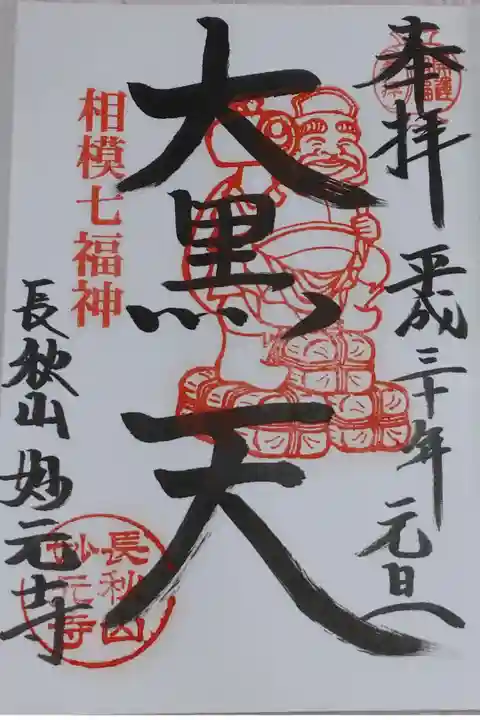 奉拝
平成三十年元旦
大黒天
相模七福神
長秋山妙元寺
長秋山
妙元寺